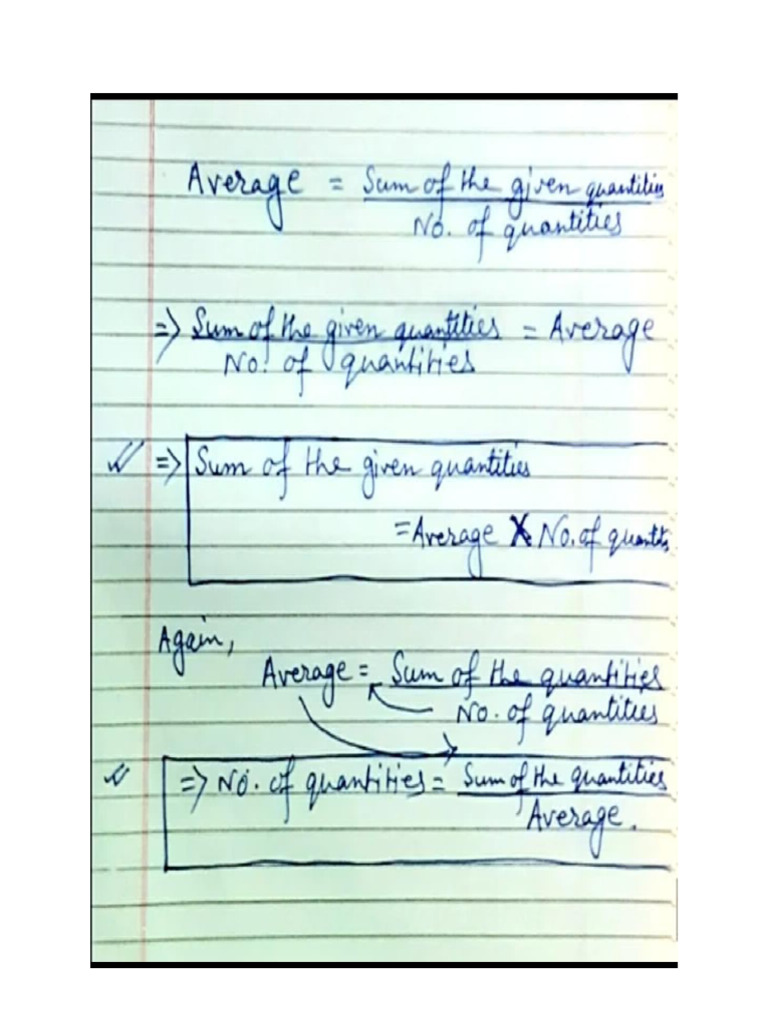 Average = Sum of the given quantities
No. of quantities
=> Sum of the given quantities = Average
No. of quantities
=> Sum of the given quantities
= Average X No. of quantits
Again,
Average = Sum of the quantities
No. of quantities
=> No. of quantities = Sum of the quantities
Average.